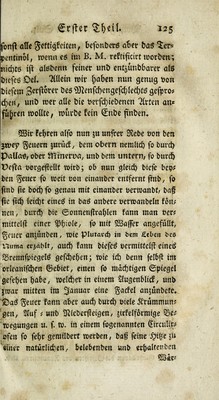 Erster Theil. 125
sonst alle Fettigkeiten, besonders aber das Ter-
pentinöl, wenn es im B. M. rektificirt worden;
nichts ist alsdenn feiner und entzündbarer als
dieses Oel. Allein wir haben nun genug von
diesem Zerstörer des Menschengeschlechts gespro-
chen, und wer alle die verschiedenen Arten an-
führen wollte, würde kein Ende finden.
Wir kehren also nun zu unsrer Rede von den
zwey Feuern zurück, dem obern nemlich so durch
Pallas, oder Minerva, und dem untern, so durch
Vesta vorgestellt wird; ob nun gleich diese bey-
den Feuer so weit von einander entfernt sind, so
sind sie doch so genau mit einander verwandt, daß
sie sich leicht eines in das andere verwandeln kön-
nen, durch die Sonnenstrahlen kann man ver-
mittelst einer Phiole, so mit Wasser angefüllt,
Feuer anzünden, wie Plutarch in dem Leben des
Numa erzählt, auch kann dieses vermittelst eines
Brennspiegels geschehen; wie ich denn selbst im
orleanischen Gebiet, einen so mächtigen Spiegel
gesehen habe, welcher in einem Augenblick, und
zwar mitten im Januar eine Fackel anzündete.
Das Feuer kann aber auch durch viele Krümmun-
gen, Auf- und Niedersteigen, zirkelförmige Be-
wegungen u. s. w. in einem sogenannten Circulir-
ofen so sehr gemildert werden, daß seine Hitze zu
einer natürlichen, belebenden und erhaltenden
Wär-